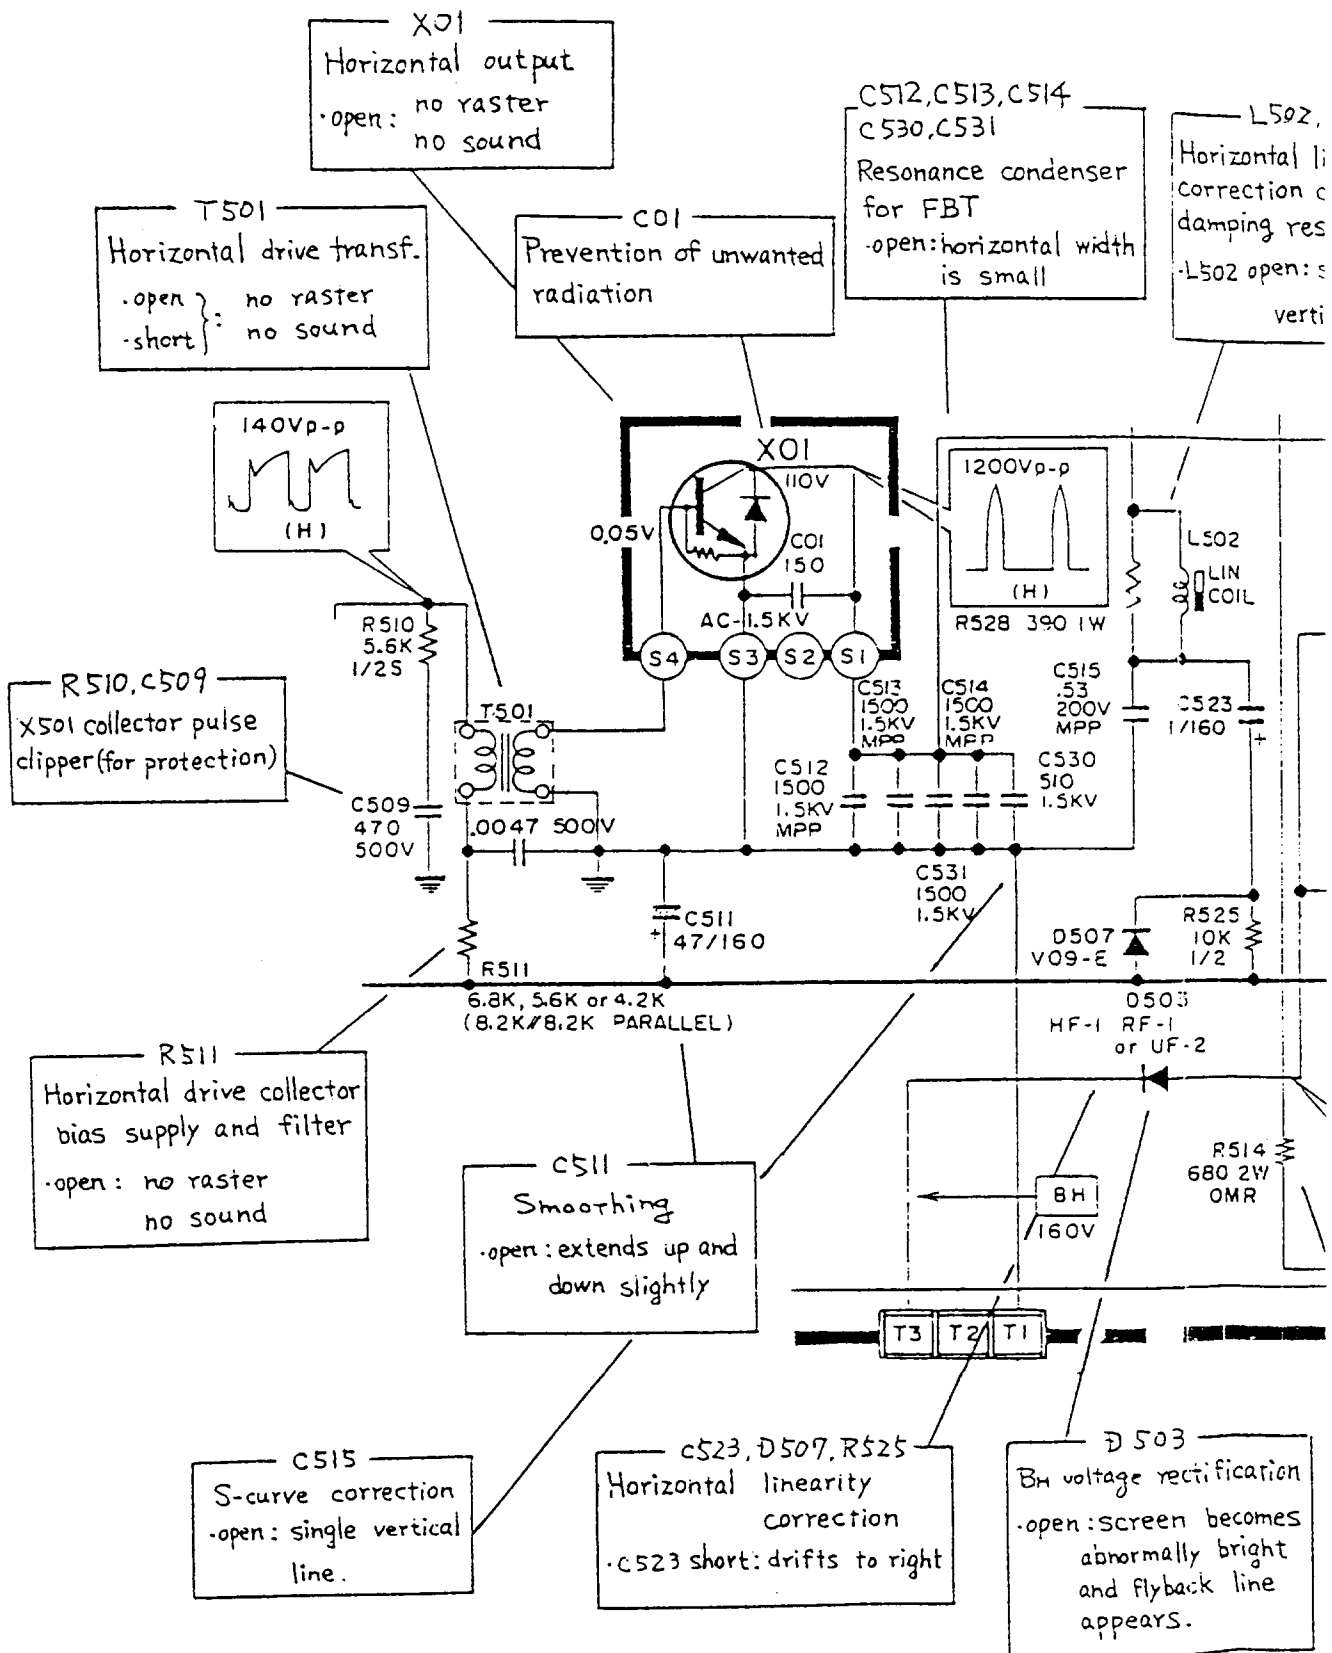 X01
Horizontal output
·open: no raster
no sound
C512, C513, C514
C530, C531
Resonance condenser
for FBT
·open: horizontal width
is small
L502,
Horizontal li
correction c
damping res
·L502 open: s
verti
T501
Horizontal drive transf.
·open
·short
: no raster
no sound
C01
Prevention of unwanted
radiation
140Vp-p
(H)
X01
110V
0.05V
C01
150
AC-1.5KV
S4
S3
S2
S1
1200Vp-p
(H)
R528 390 1W
L502
LIN
COIL
R510
5.6K
1/2S
R510, C509
X501 collector pulse
clipper (for protection)
T501
C509
470
500V
.0047 500V
C513
1500
1.5KV
MPP
C514
1500
1.5KV
MPP
C515
.53
200V
MPP
C523
1/160
+
C512
1500
1.5KV
MPP
C530
510
1.5KV
C531
1500
1.5KV
C511
+ 47/160
R511
6.8K, 5.6K or 4.2K
(8.2K//8.2K PARALLEL)
D507
V09-E
R525
10K
1/2
D503
HF-1 RF-1
or UF-2
R511
Horizontal drive collector
bias supply and filter
·open: no raster
no sound
C511
Smoothing
·open: extends up and
down slightly
BH
160V
R514
680 2W
OMR
T3
T2
T1
C515
S-curve correction
·open: single vertical
line.
C523, D507, R525
Horizontal linearity
correction
·C523 short: drifts to right
D503
BH voltage rectification
·open: screen becomes
abnormally bright
and flyback line
appears.